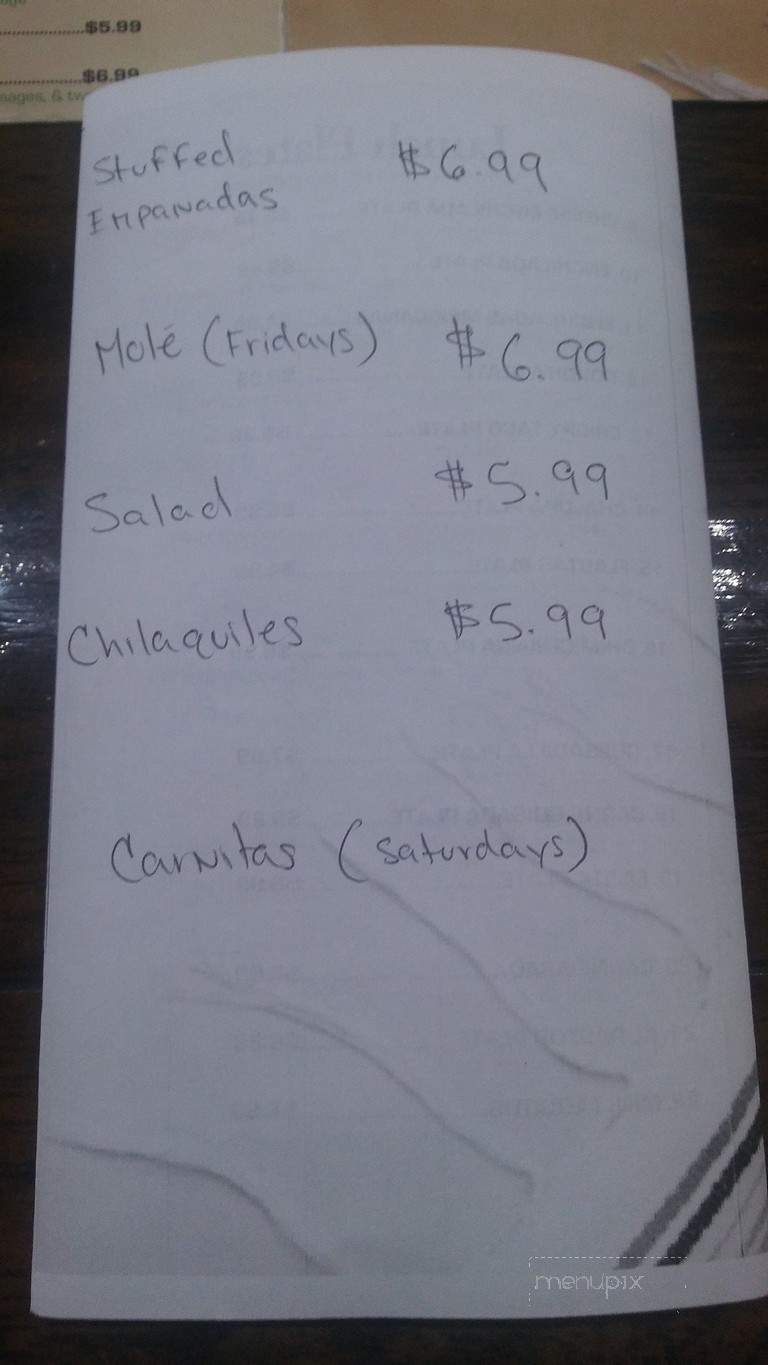 $5.99
$6.99
Stuffed $6.99
Empanadas
Molé (Fridays) $6.99
Salad $5.99
Chilaquiles $5.99
Carnitas (Saturdays)
menupix